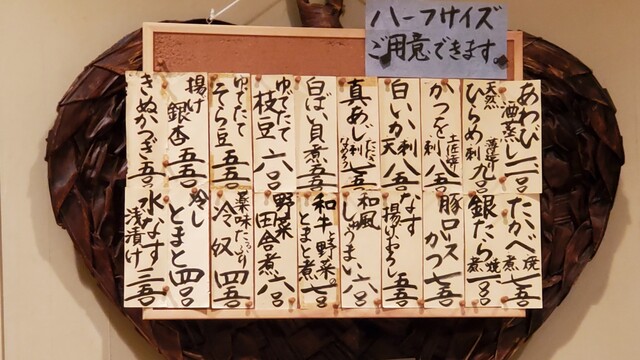 ハーフサイズ
ご用意できます。
あわび酒蒸し 一二〇〇
天然ひらめ刺 薄造り 九〇〇
かつを刺 土佐造り 八五〇
白いか刺 天 八五〇
真あじ刺 たたき なめろう 七五〇
白ばい貝煮 五五〇
ゆでたて枝豆 六〇〇
ゆでたてそら豆 五五〇
揚げ銀杏 五五〇
きぬかつぎ 五五〇
たかべ焼 煮 七五〇
銀だら焼 煮
豚ロースかつ 七五〇
なす揚げおろし 五五〇
和風しゅうまい 六〇〇
和牛、野菜。とまと煮 七〇〇
野菜田舎煮 六〇〇
薬味たっぷり冷奴 四五〇
冷しとまと 四〇〇
水なす浅漬け 三五〇